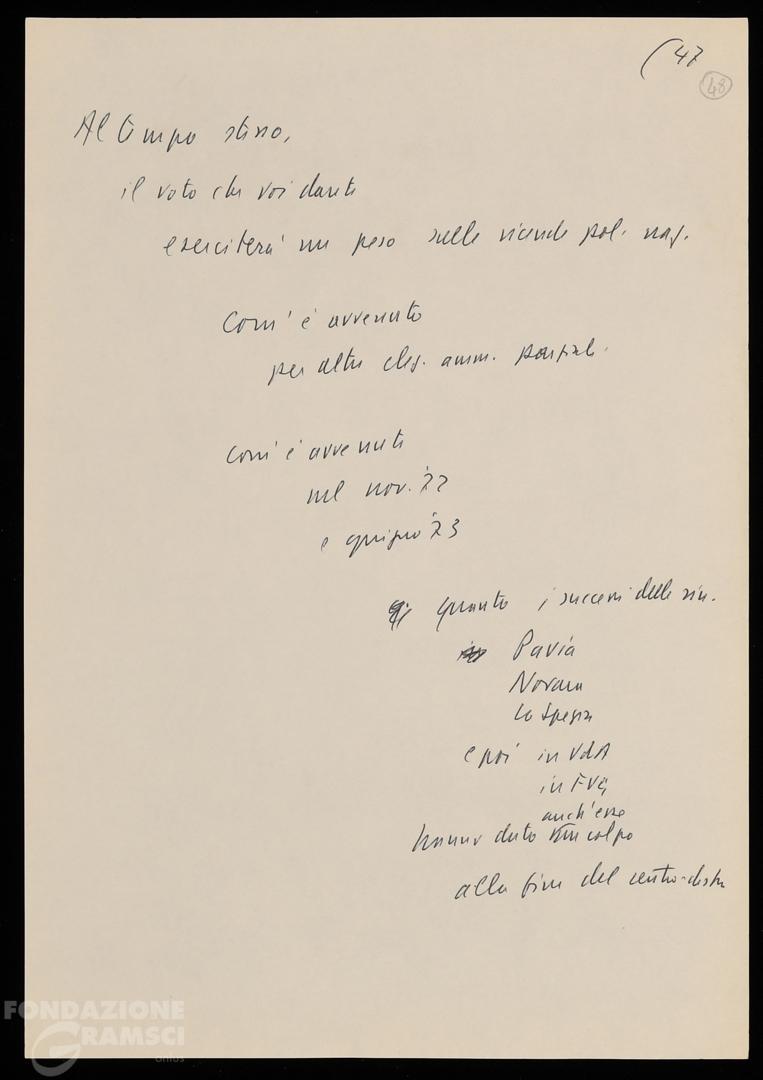 (47
48
Al tempo stesso,
il voto che voi darete
eserciterà un peso sulle vicende pol. naz.
Com'è avvenuto
per altre elez. amm. parziali.
Com'è avvenuto
nel nov. '72
e giugno '73
quanto i successi delle sin.
Pavia
Novara
La Spezia
e poi in VdA
in FVG
anch'esse
hanno dato un colpo
alla fine del centro-destra
FONDAZIONE
GRAMSCI
onlus